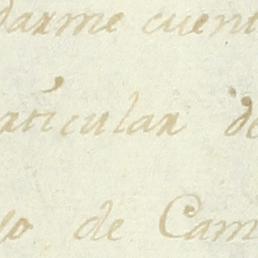 darme cuent
articular de
eo de Cam